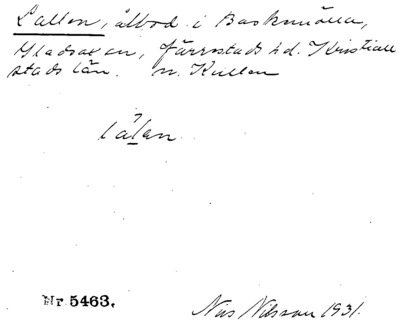 Lallen, ålbod i Baskemölla,
Gladsaxen, Järrestads hd. Kristian
stads län. n. Kullen
lålen
Nr. 5463.
Nils Nilsson 1931.